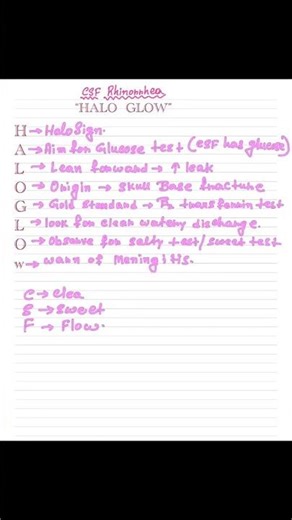 CSF Rhinorrhea
"HALO GLOW"
H → Halo Sign.
A → Aim for Glucose test (CSF has glucose)
L → Lean forward → ↑ leak
O → Origin → Skull Base fracture
G → Gold Standard → B₂ transferrin test
L → look for clean watery discharge.
O → Observe for salty test/sweet test
W → warn of Meningitis.
C → clea
S → sweet
F → Flow.